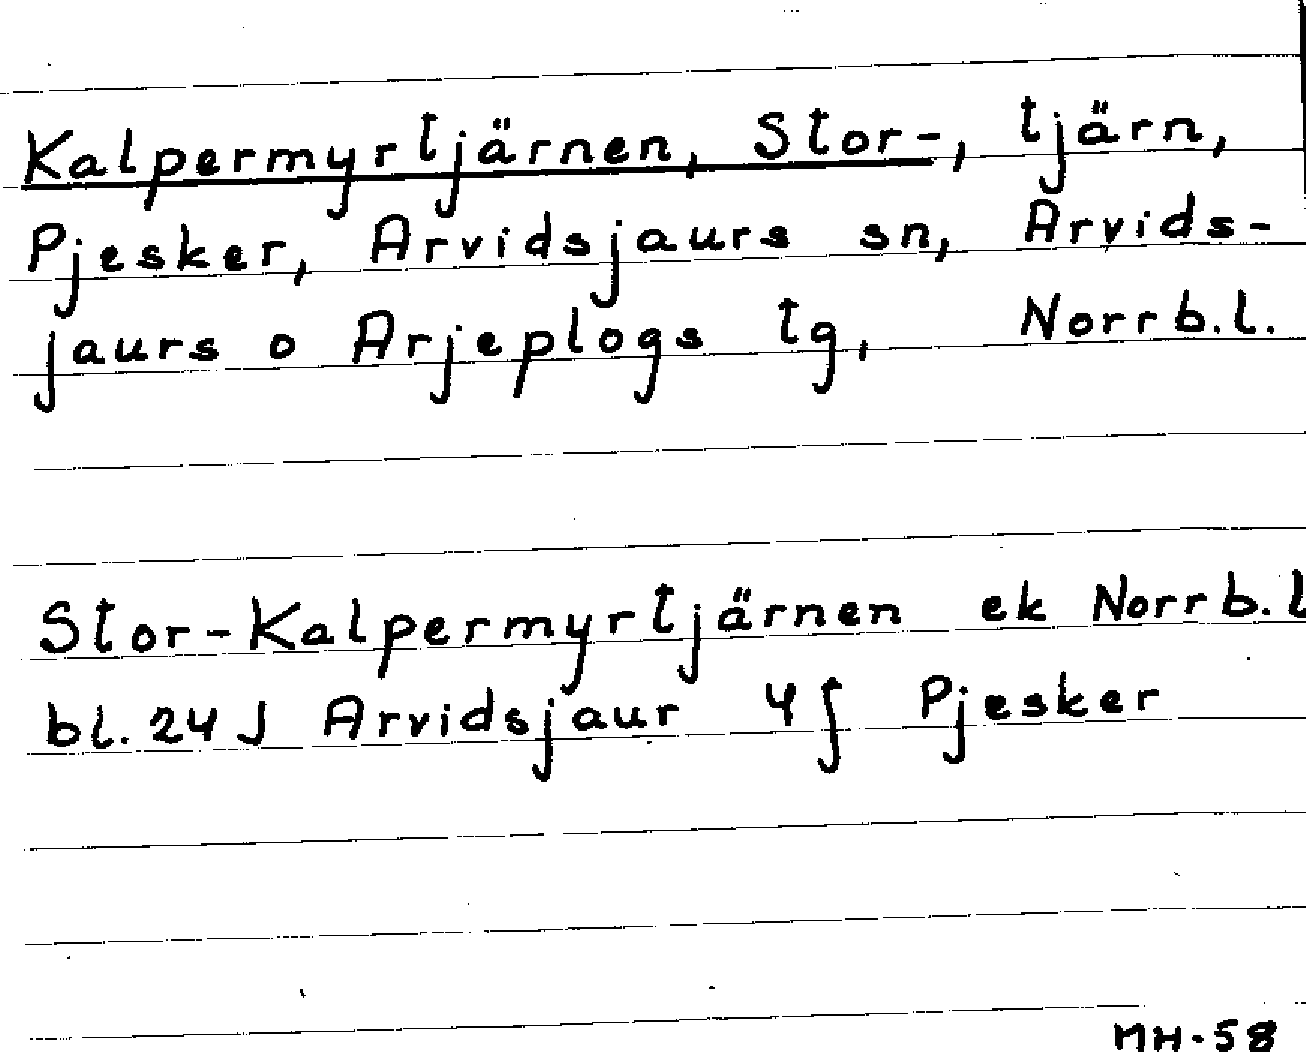 Kalpermyrtjärnen, Stor-, tjärn,
Pjesker, Arvidsjaurs sn, Arvids-
jaurs o Arjeplogs tg, Norrb.l.
Stor-Kalpermyrtjärnen ek Norrb.l
bl. 24 J Arvidsjaur 4 f Pjesker
MH-58